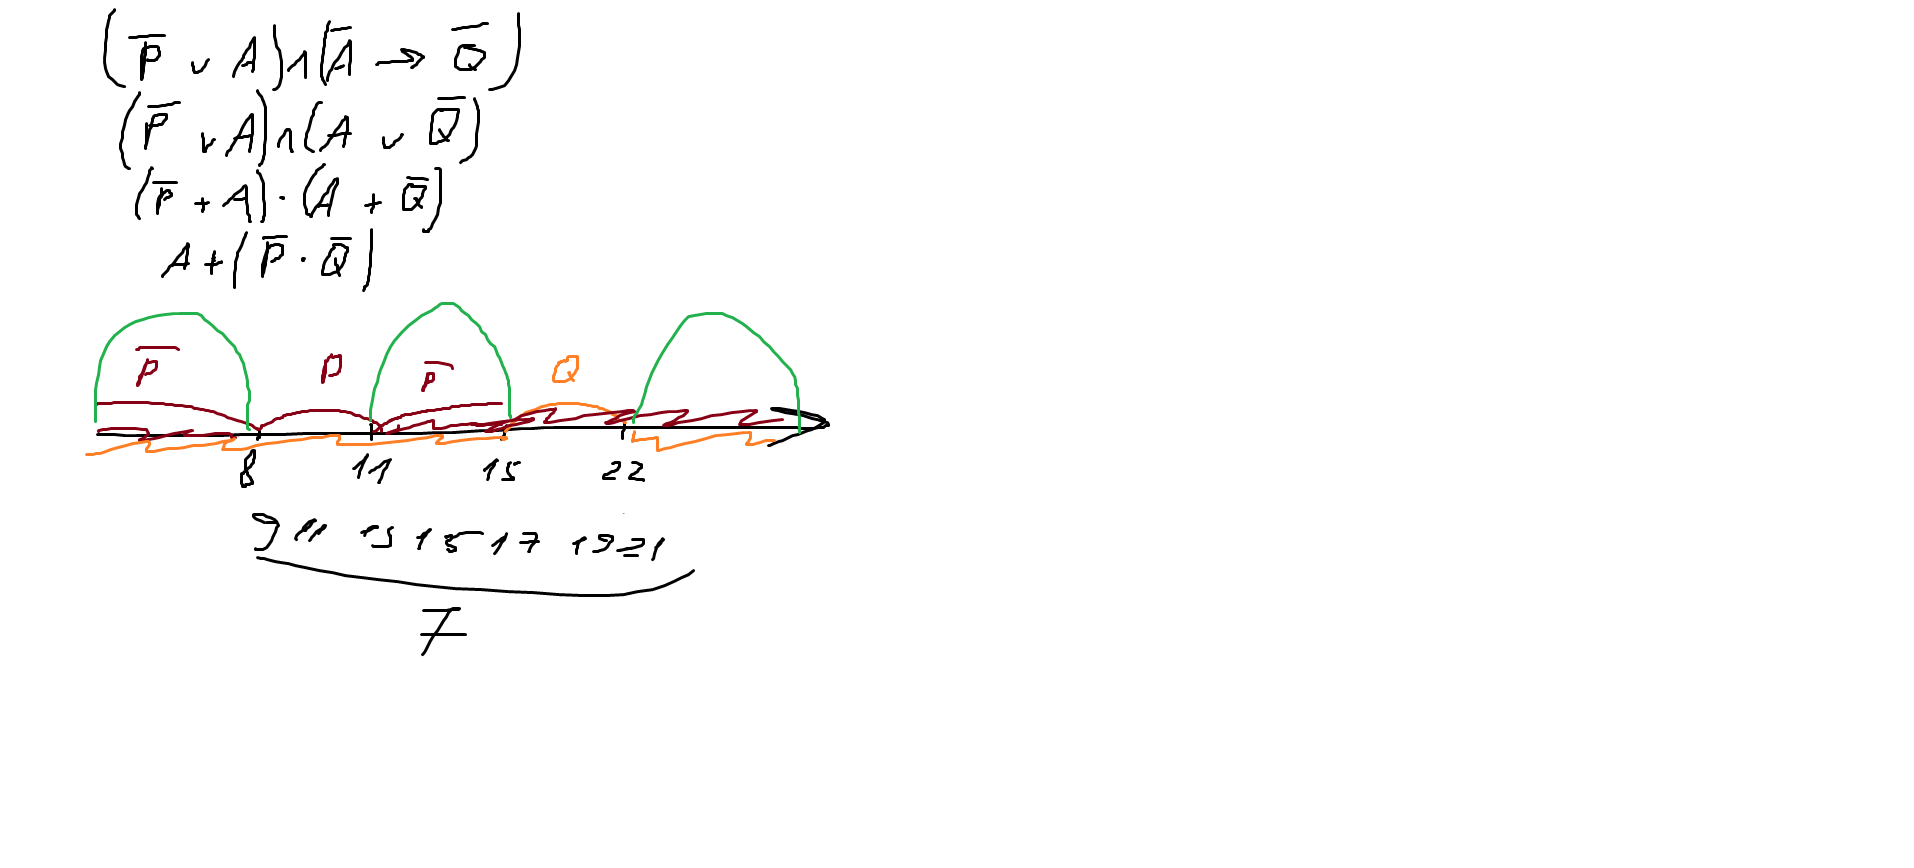 (P̅ ∨ A) ∧ (A̅ → Q̅)
(P̅ ∨ A) ∧ (A ∨ Q̅)
(P̅ + A) · (A + Q̅)
A + (P̅ · Q̅)
P̅ P P̅ Q
8 11 15 22
9 11 13 15 17 19 21
7